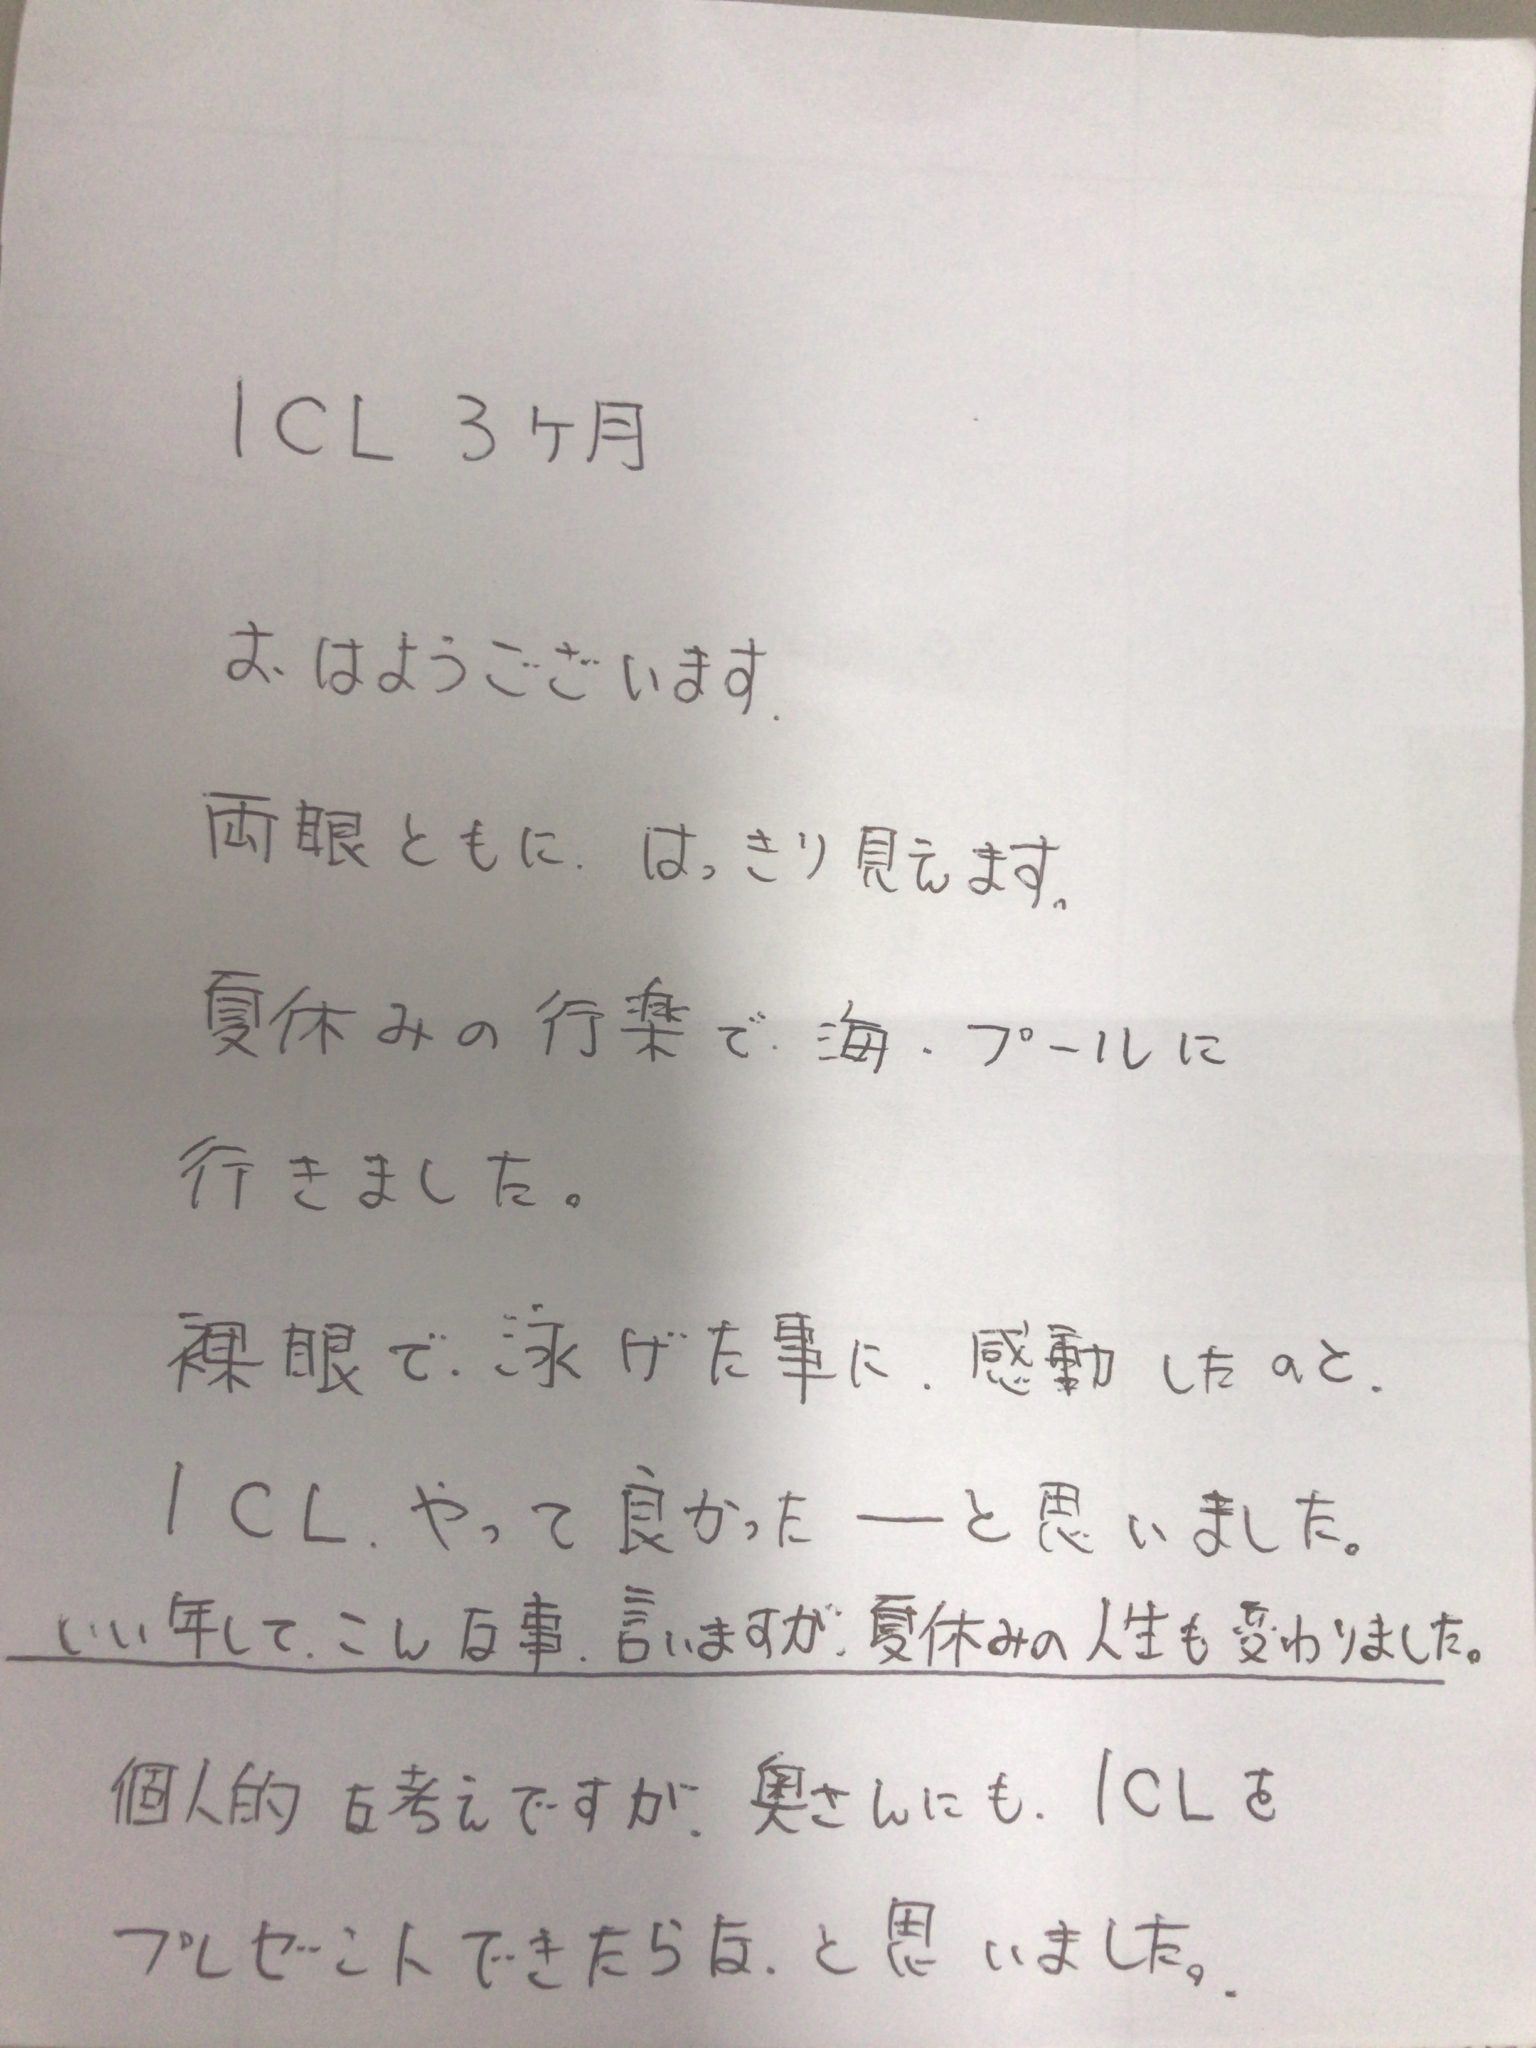 ICL 3ケ月
おはようございます.
両眼ともに. はっきり見えます。
夏休みの行楽で. 海. プールに
行きました。
裸眼で. 泳げた事に. 感動したのと.
ICL. やって良かった ― と思いました。
いい年して. こんな事. 言いますが. 夏休みの人生も変わりました。
個人的な考えですが. 奥さんにも. ICLを
プレゼントできたらな. と思いました。.